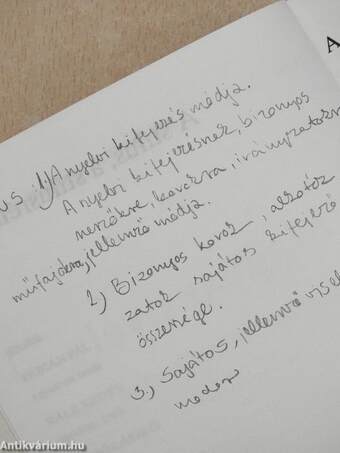 A
us 1.) A nyelvi kifejezés módja.
A nyelvi kifejezésnek, bizonyos
korokra, irányzatokra
műfajokra, jellemző módja.
2) Bizonyos korok, alkotók
sajátos kifejező
összessége.
3.) Sajátos, jellemző visel
modor
Antikvárium.hu